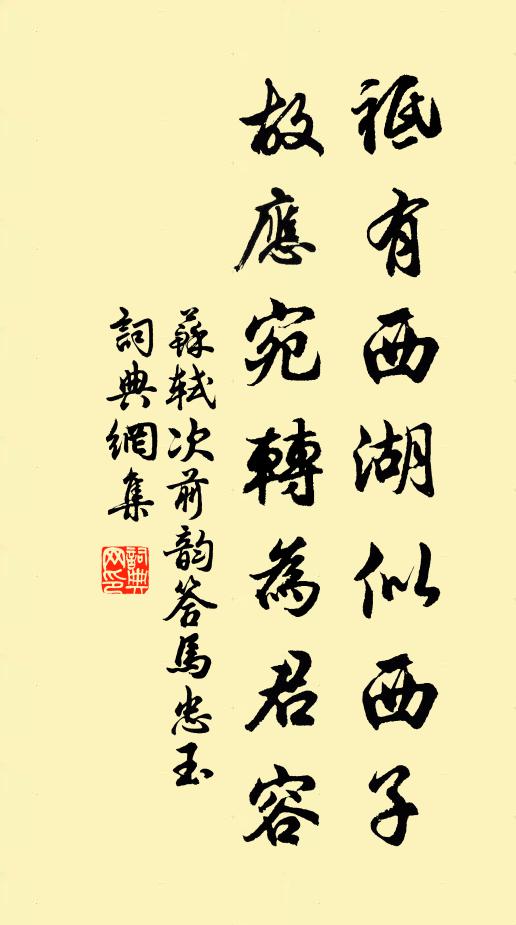 祗有西湖似西子
故應宛轉為君容
蘇軾次前韵答馬忠玉
詞典網集
詞典網印